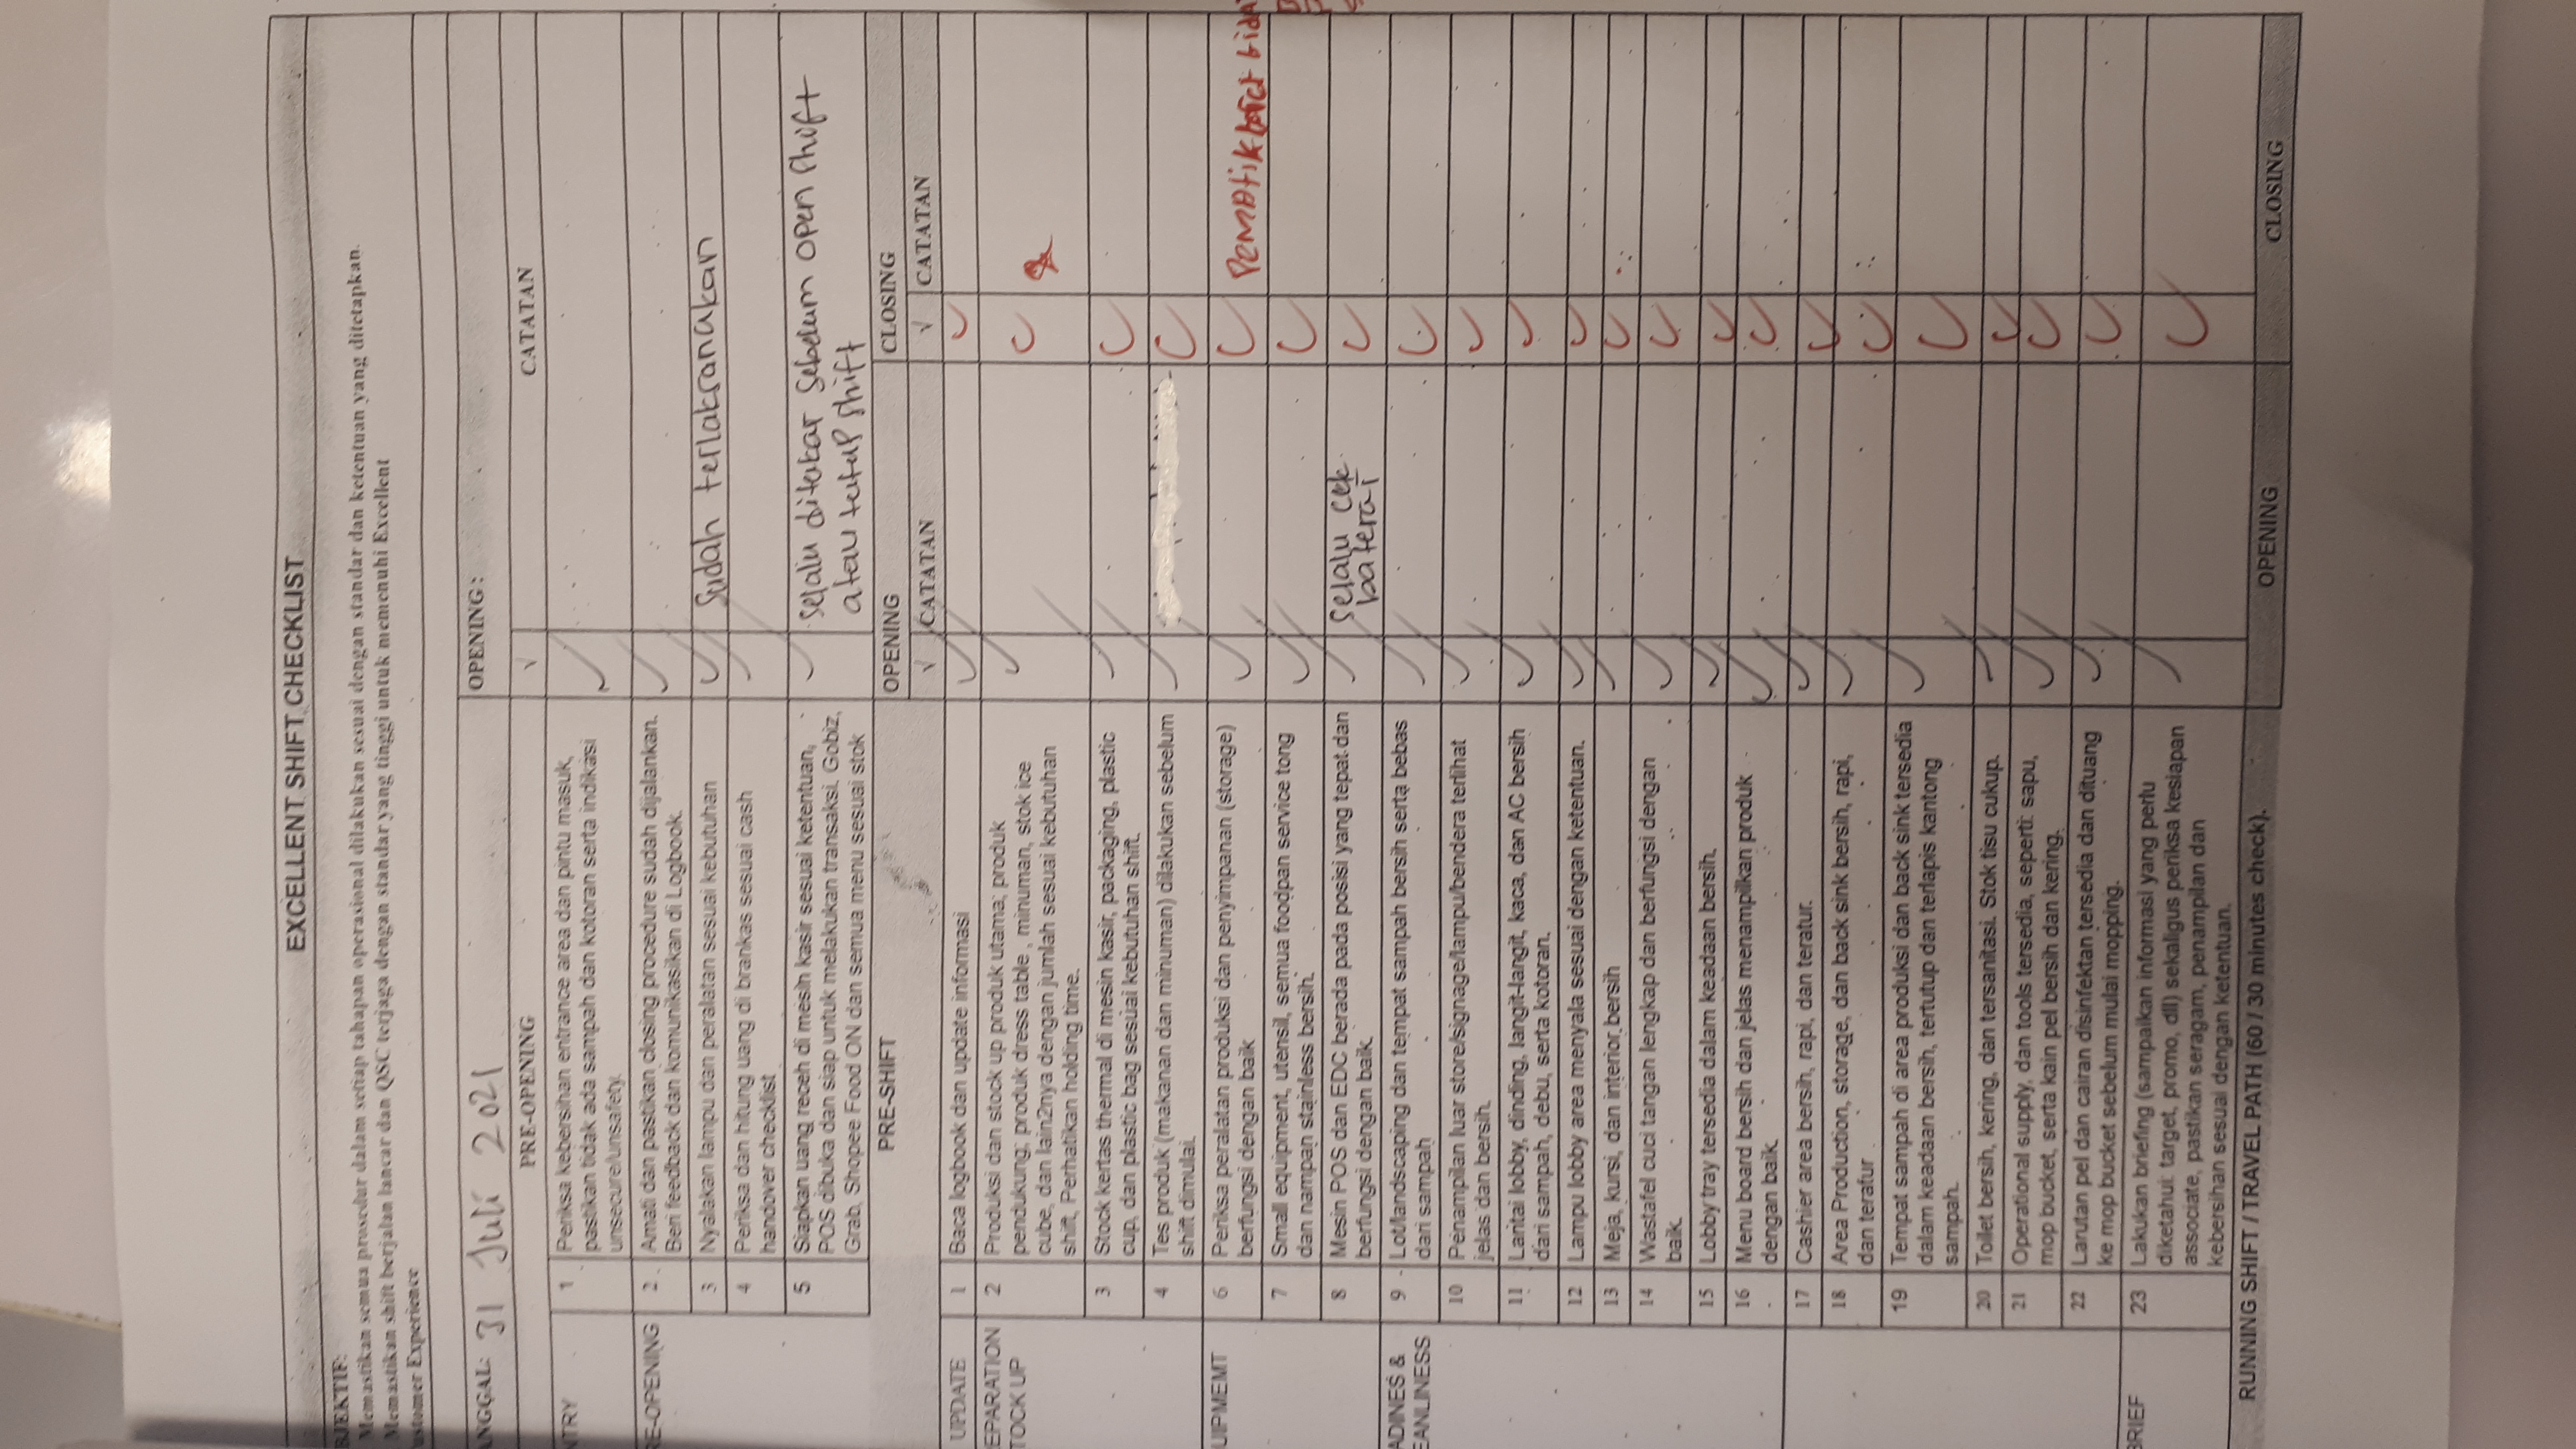 EXCELLENT SHIFT CHECKLIST
BJEKTIF:
Memastikan semua prosedur dalam setiap tahapan operasional dilakukan sesuai dengan standar dan ketentuan yang ditetapkan.
Memastikan shift berjalan lancar dan QSC terjaga dengan standar yang tinggi untuk memenuhi Excellent
ustomer Experience
ANGGAL: 31 Juli 2021
OPENING :
PRE-OPENING √ CATATAN
NTRY 1 Periksa kebersihan entrance area dan pintu masuk,
pastikan tidak ada sampah dan kotoran serta indikasi
unsecure/unsafety.
RE-OPENING 2 Amati dan pastikan closing procedure sudah dijalankan.
Beri feedback dan komunikasikan di Logbook.
3 Nyalakan lampu dan peralatan sesuai kebutuhan Sudah terlaksanakan
4 Periksa dan hitung uang di brankas sesuai cash
handover checklist
5 Siapkan uang receh di mesin kasir sesuai ketentuan, selalu ditukar sebelum open shift
POS dibuka dan siap untuk melakukan transaksi. Gobiz, atau tutup shift
Grab, Shopee Food ON dan semua menu sesuai stok
PRE-SHIFT OPENING CLOSING
√ CATATAN √ CATATAN
UPDATE 1 Baca logbook dan update informasi
EPARATION 2 Produksi dan stock up produk utama; produk
TOCK UP pendukung; produk dress table , minuman, stok ice
cube, dan lain2nya dengan jumlah sesuai kebutuhan
shift, Perhatikan holding time.
3 Stock kertas thermal di mesin kasir, packaging, plastic
cup, dan plastic bag sesuai kebutuhan shift.
4 Tes produk (makanan dan minuman) dilakukan sebelum
shift dimulai.
UIPMEMT 6 Periksa peralatan produksi dan penyimpanan (storage) Pematik
berfungsi dengan baik
7 Small equipment, utensil, semua foodpan service tong
dan nampan stainless bersih.
8 Mesin POS dan EDC berada pada posisi yang tepat dan selalu cek
berfungsi dengan baik. baterai
ADINES & 9 Lot/landscaping dan tempat sampah bersih serta bebas
EANLINESS dari sampah
10 Penampilan luar store/signage/lampu/bendera terlihat
jelas dan bersih.
11 Lantai lobby, dinding, langit-langit, kaca, dan AC bersih
dari sampah, debu, serta kotoran.
12 Lampu lobby area menyala sesuai dengan ketentuan.
13 Meja, kursi, dan interior bersih
14 Wastafel cuci tangan lengkap dan berfungsi dengan
baik.
15 Lobby tray tersedia dalam keadaan bersih.
16 Menu board bersih dan jelas menampilkan produk
dengan baik.
17 Cashier area bersih, rapi, dan teratur.
18 Area Production, storage, dan back sink bersih, rapi,
dan teratur
19 Tempat sampah di area produksi dan back sink tersedia
dalam keadaan bersih, tertutup dan terlapis kantong
sampah.
20 Toilet bersih, kering, dan tersanitasi. Stok tisu cukup.
21 Operational supply, dan tools tersedia, seperti: sapu,
mop bucket, serta kain pel bersih dan kering.
22 Larutan pel dan cairan disinfektan tersedia dan dituang
ke mop bucket sebelum mulai mopping.
BRIEF 23 Lakukan briefing (sampaikan informasi yang perlu
diketahui: target, promo, dll) sekaligus periksa kesiapan
associate, pastikan seragam, penampilan dan
kebersihan sesuai dengan ketentuan.
RUNNING SHIFT / TRAVEL PATH (60 / 30 minutes check). OPENING CLOSING